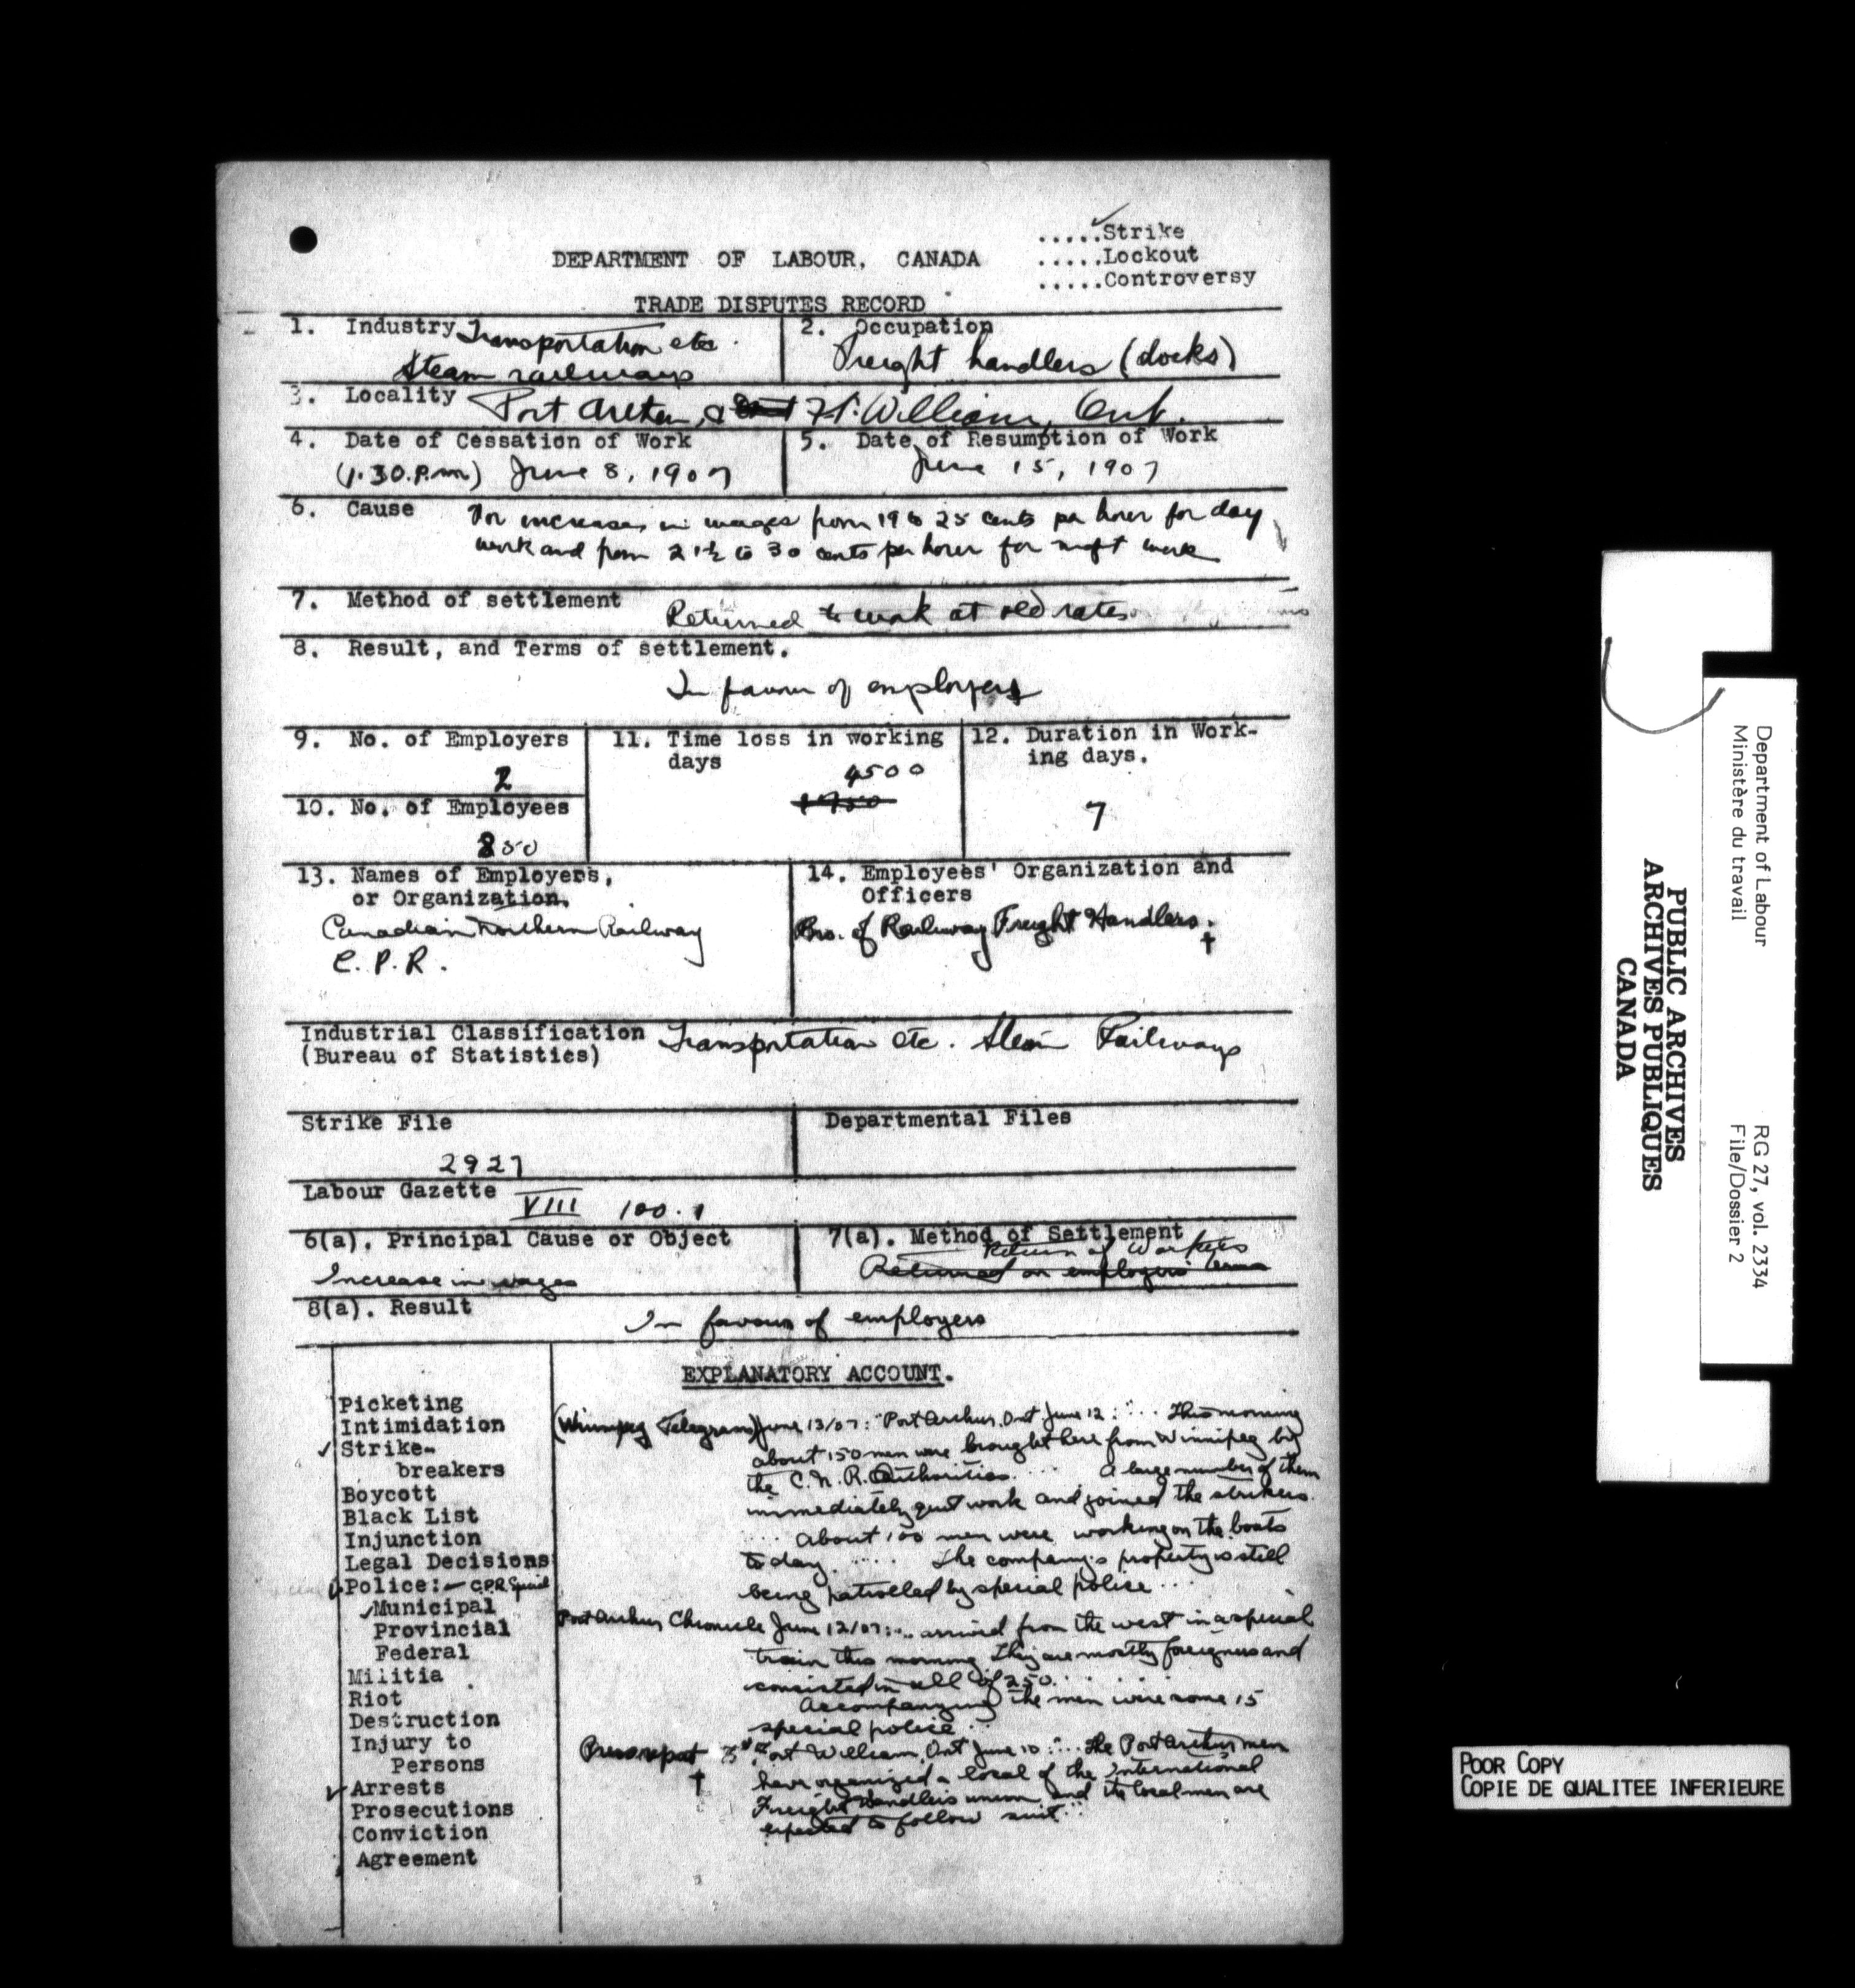 .....Strike
DEPARTMENT OF LABOUR, CANADA
.....Lockout
.....Controversy
TRADE DISPUTES RECORD
1. Industry Transportation etc.
Steam railways
2. Occupation
Freight handlers (docks)
3. Locality Port Arthur, & Ft. William, Ont.
4. Date of Cessation of Work
(1.30.P.m.) June 8, 1907
5. Date of Resumption of Work
June 15, 1907
6. Cause For increases in wages from 19 to 25 cents per hour for day
work and from 21½ to 30 cents per hour for night work
7. Method of settlement Returned to work at old rates.
8. Result, and Terms of settlement.
In favour of employers
9. No. of Employers
2
10. No. of Employees
850
11. Time loss in working
days
4500
12. Duration in Work-
ing days.
7
13. Names of Employers,
or Organization.
Canadian Northern Railway
C.P.R.
14. Employees' Organization and
Officers
Bro. of Railway Freight Handlers. †
Industrial Classification Transportation etc. Steam Railways
(Bureau of Statistics)
Strike File
2927
Departmental Files
Labour Gazette VIII 100.1
6(a). Principal Cause or Object
Increase in wages
7(a). Method of Settlement
Return of Workers
Returned on employers' terms
8(a). Result In favour of employers
EXPLANATORY ACCOUNT.
Picketing
Intimidation
Strike-
breakers
Boycott
Black List
Injunction
Legal Decisions
Police:- C.P.R. Special
Municipal
Provincial
Federal
Militia
Riot
Destruction
Injury to
Persons
Arrests
Prosecutions
Conviction
Agreement
(Winnipeg Telegram) June 13/07: "Port Arthur, Ont June 12: "... This morning
about 150 men were brought here from Winnipeg by
the C.N.R. Authorities.... A large number of them
immediately quit work and joined the strikers.
.... About 100 men were working on the boats
today..... The company's property is still
being patrolled by special police...
Port Arthur Chronicle June 12/07:... arrived from the west in a special
train this morning They are mostly foreigners and
consisted in all of 250....
Accompanying the men were some 15
special police...
Press report "Fort William, Ont June 10:"... The Port Arthur men
† have organized a local of the International
Freight Handlers union, and the local men are
expected to follow suit..."
Department of Labour
Ministère du travail
RG 27, vol. 2334
File/Dossier 2
PUBLIC ARCHIVES
ARCHIVES PUBLIQUES
CANADA
POOR COPY
COPIE DE QUALITEE INFERIEURE